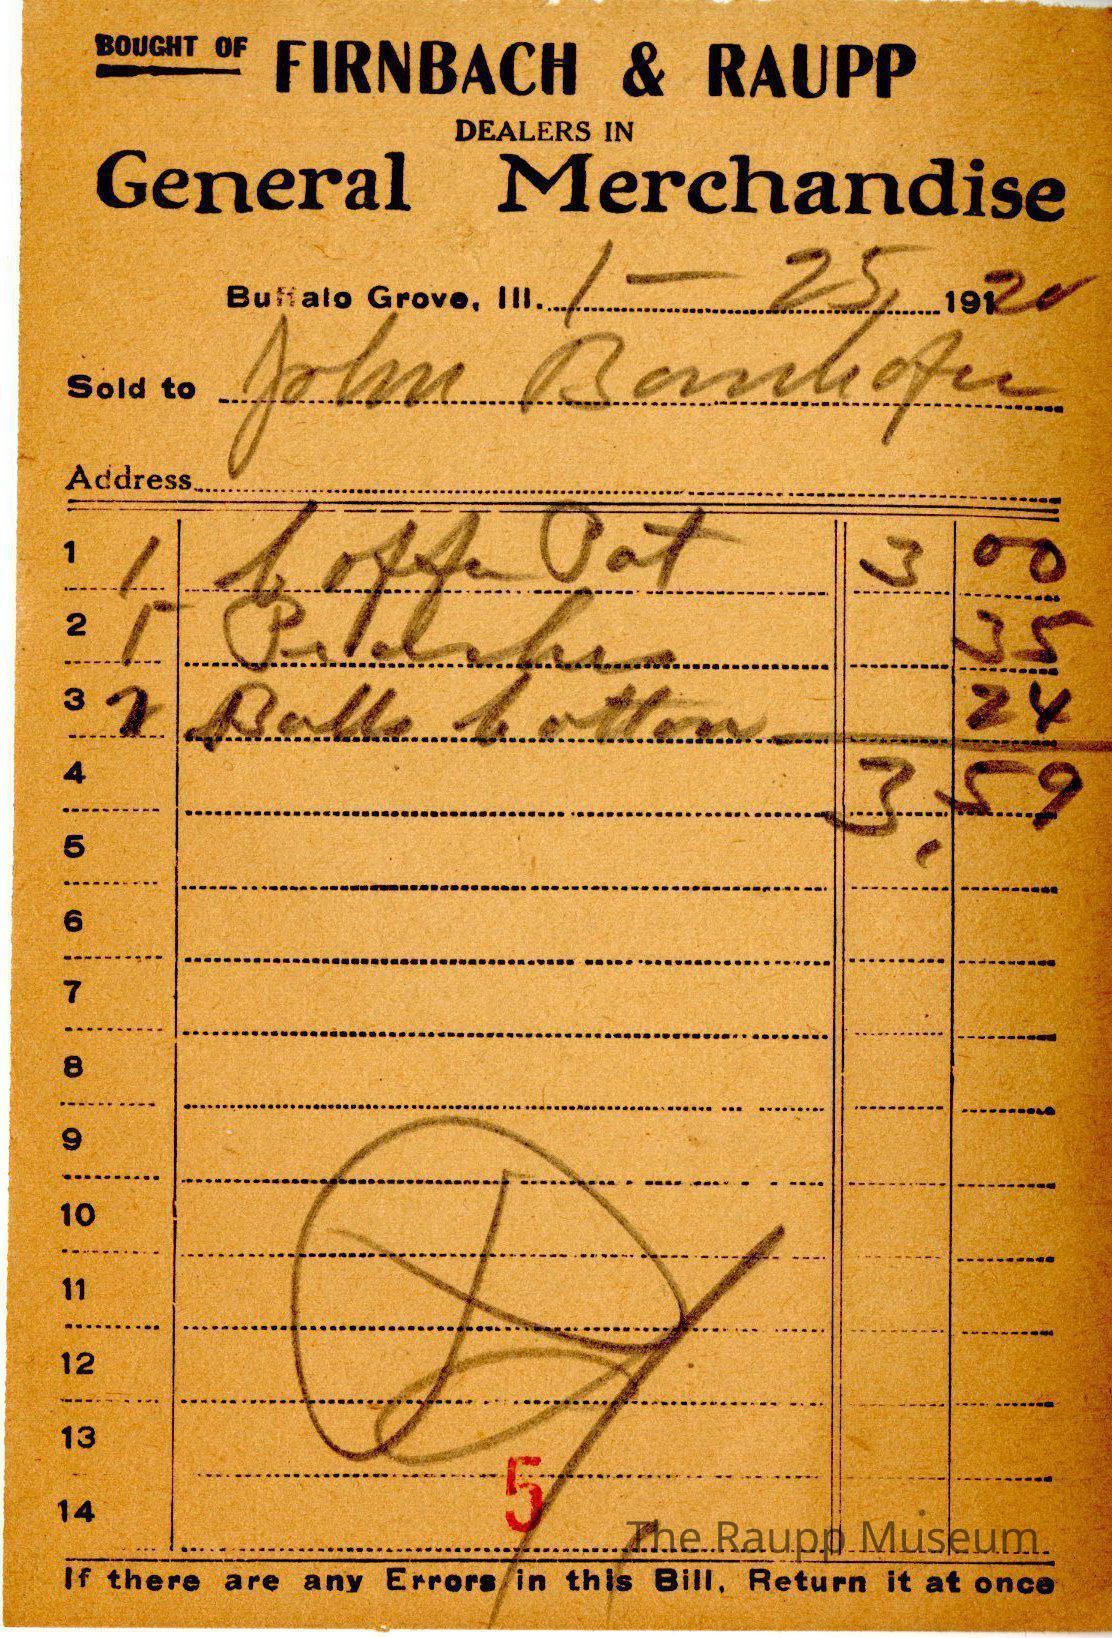 BOUGHT OF FIRNBACH & RAUPP
DEALERS IN
General Merchandise
Buffalo Grove, Ill. 1 - 25, 19120
Sold to John Bornhofer
Address
1 1 Coffe Pot 3 00
2 1 35
3 2 Balls Cotton 24
4 3,59
5
6
7
8
9
10
11
12
13
5
14
The Raupp Museum
If there are any Errors in this Bill, Return it at once